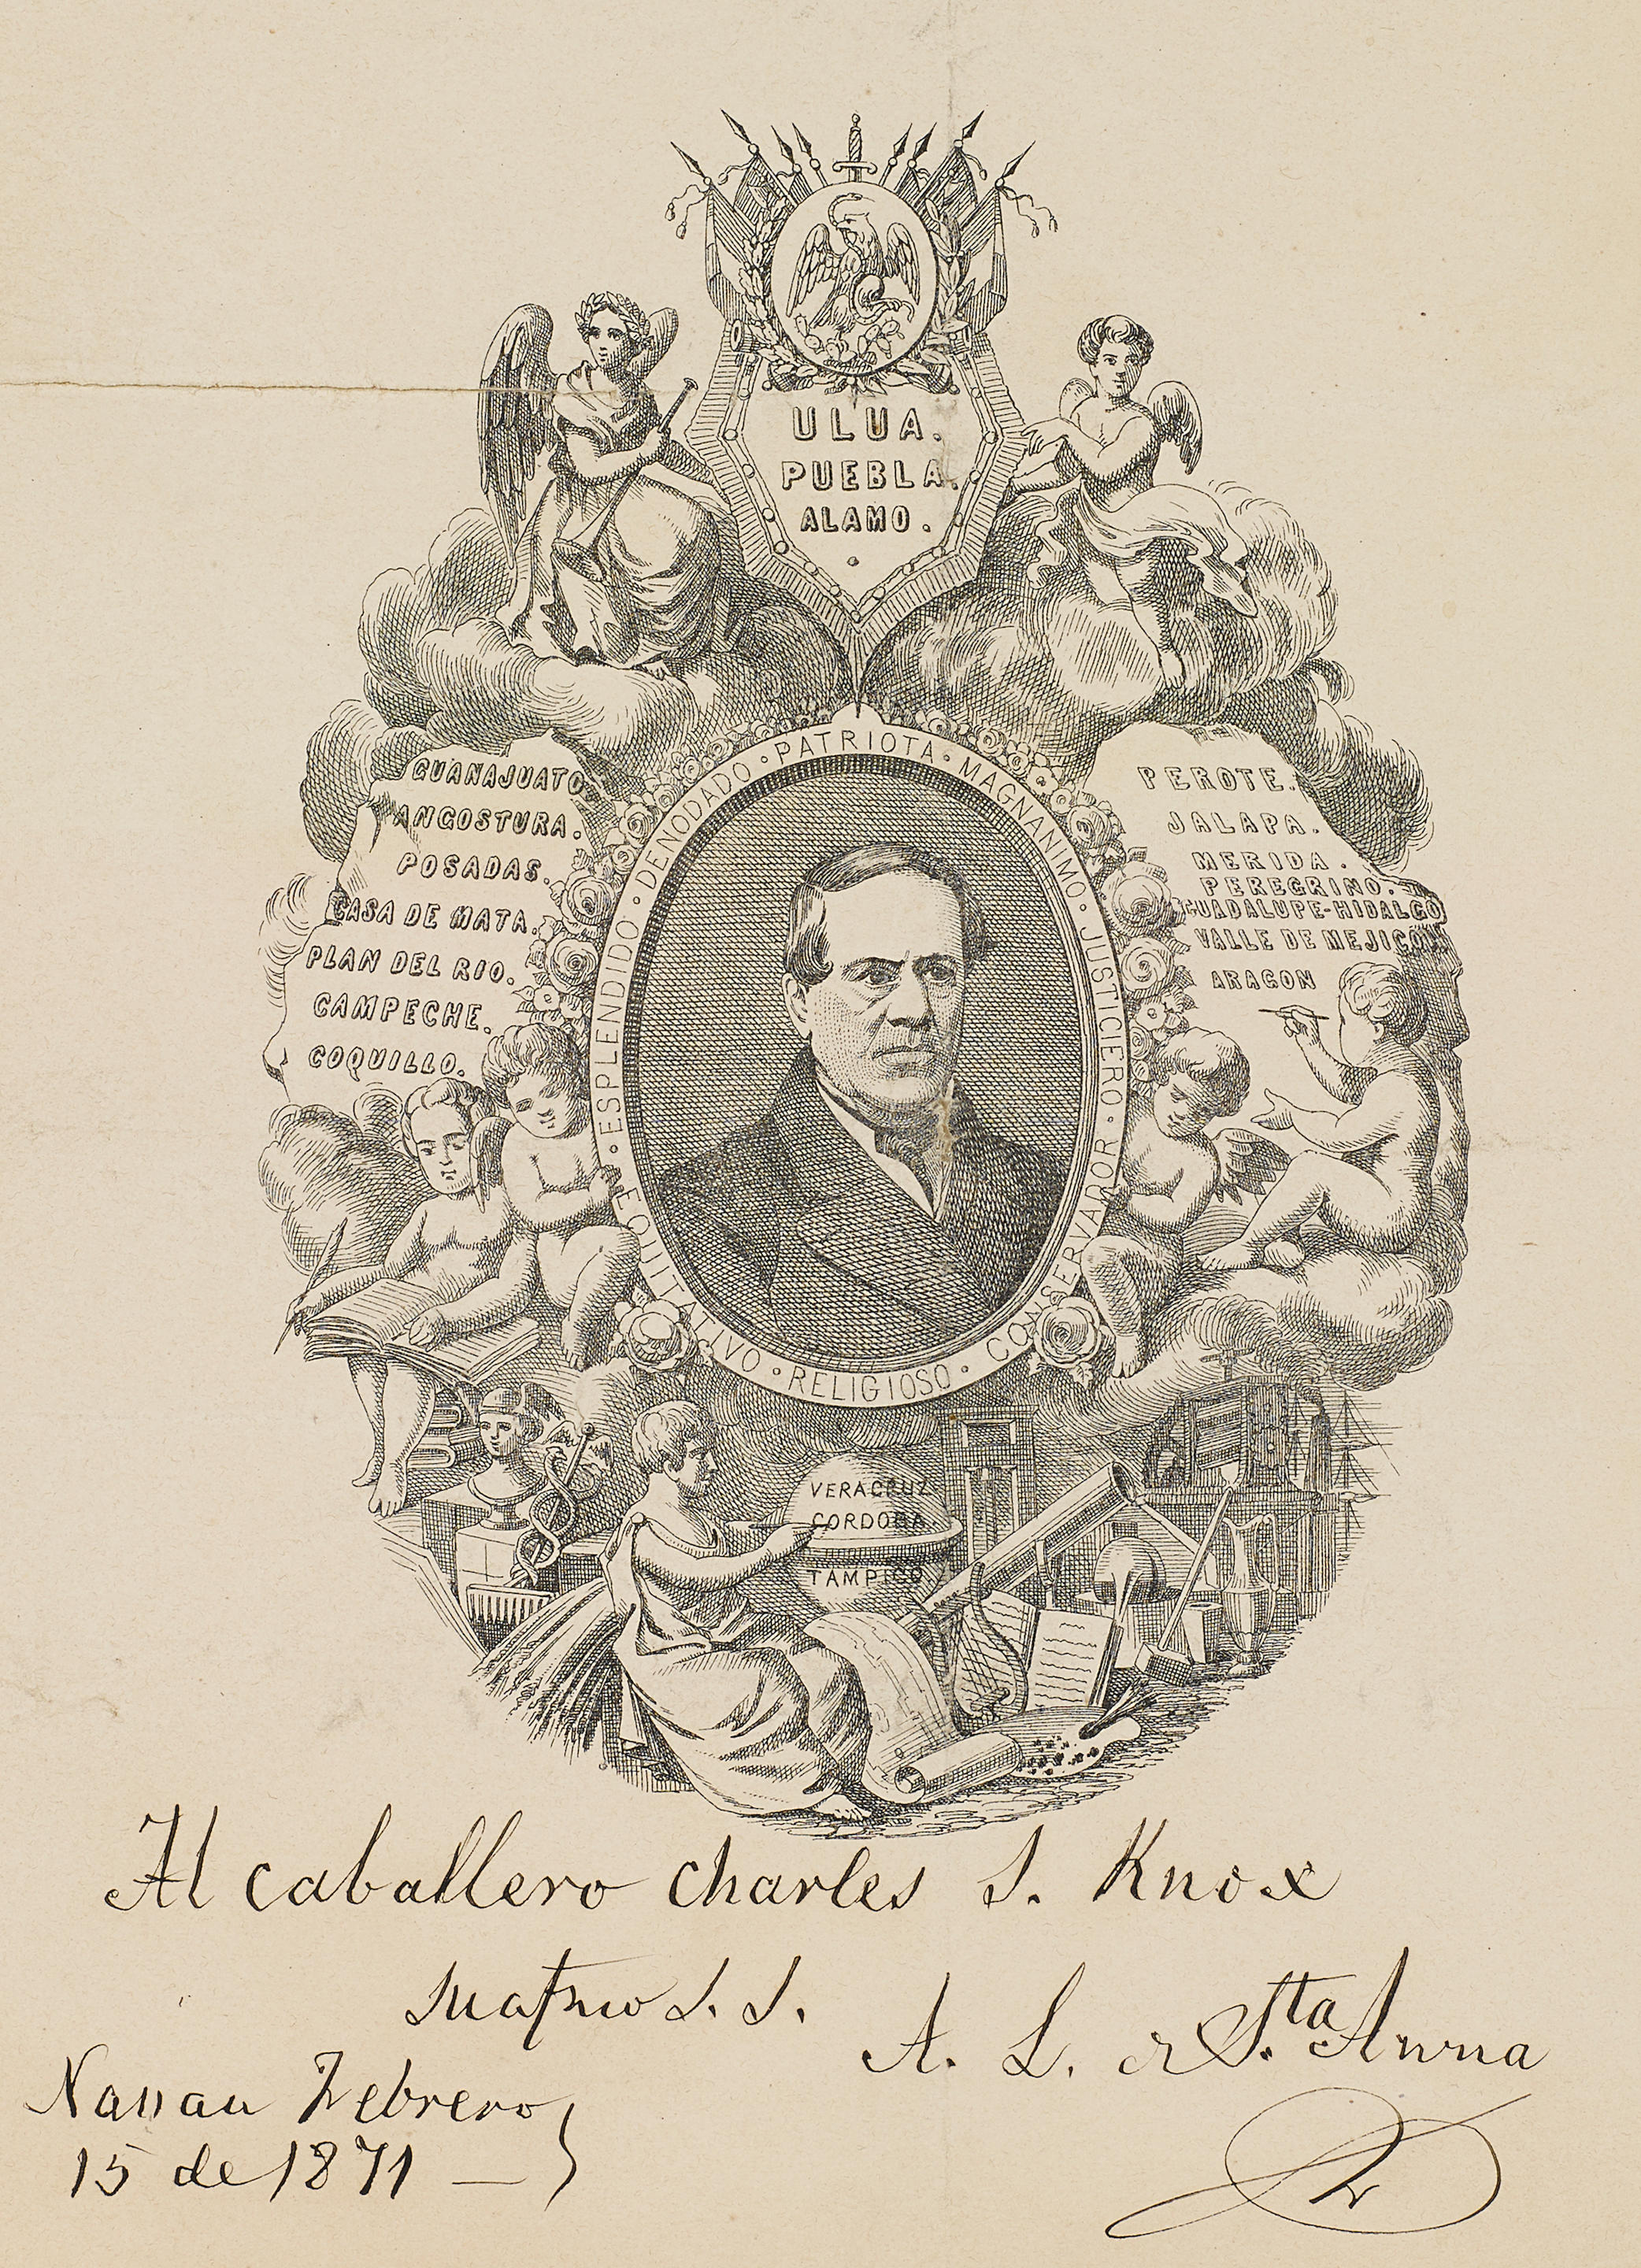 ULUA.
PUEBLA.
ALAMO.
GUANAJUATO.
ANGOSTURA.
POSADAS.
CASA DE MATA.
PLAN DEL RIO.
CAMPECHE.
COQUILLO.
PEROTE.
JALAPA.
MERIDA.
PEREGRINO.
GUADALUPE-HIDALGO
VALLE DE MEJICO
ARAGON
EQUITATIVO · ESPLENDIDO · DENODADO · PATRIOTA · MAGNANIMO · JUSTICIERO · CONSERVADOR · RELIGIOSO ·
VERACRUZ
CORDOBA
TAMPICO
Al caballero Charles S. Knox
S. S.
A. L. de S.ta Anna
Nassau Febrero
15 de 1871